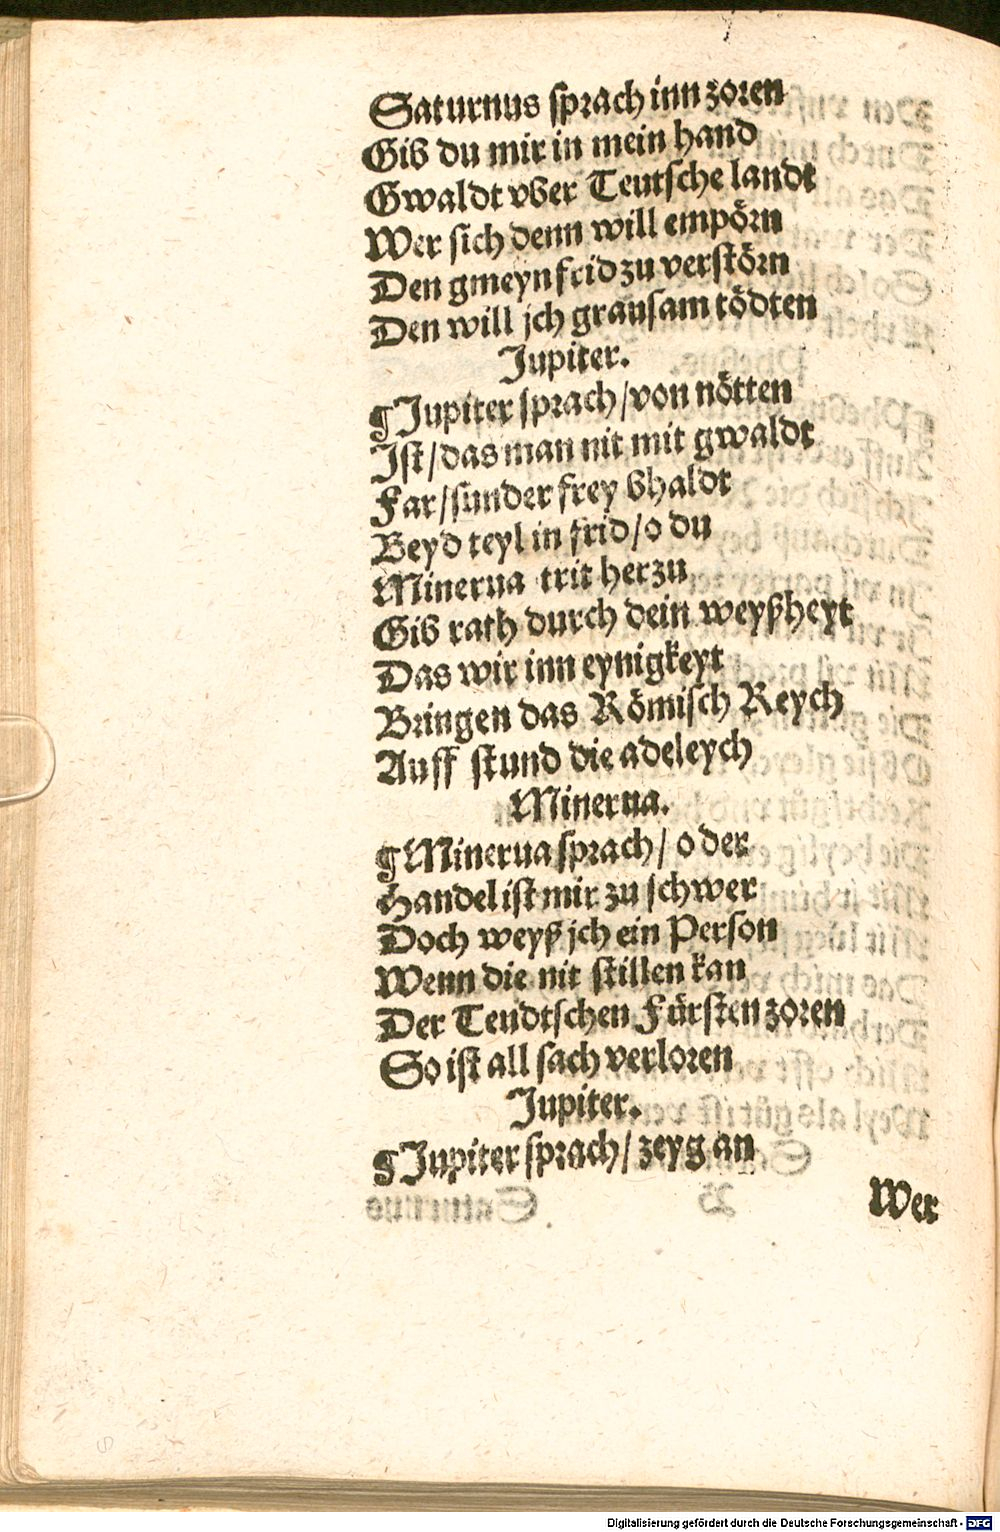 Saturnus sprach inn zoren
Gib du mir in mein hand
Gwaldt vber Teutsche landt
Wer sich denn will empörn
Den gmeyn frid zu verstörn
Den will jch grausam tödten
Jupiter.
¶ Jupiter sprach / von nötten
Ist / das man nit mit gwaldt
Far / sunder frey bhaldt
Beyd teyl in frid / o du
Minerua trit herzu
Gib rath durch dein weyßheyt
Das wir inn eynigkeyt
Bringen das Römisch Reych
Auff stund die adeleych
Minerua.
¶ Minerua sprach / o der
Handel ist mir zu schwer
Doch weyß jch ein Person
Wenn die nit stillen kan
Der Teudtschen Fürsten zoren
So ist all sach verloren
Jupiter.
¶ Jupiter sprach / zeyg an
Wer
Digitalisierung gefördert durch die Deutsche Forschungsgemeinschaft - DFG